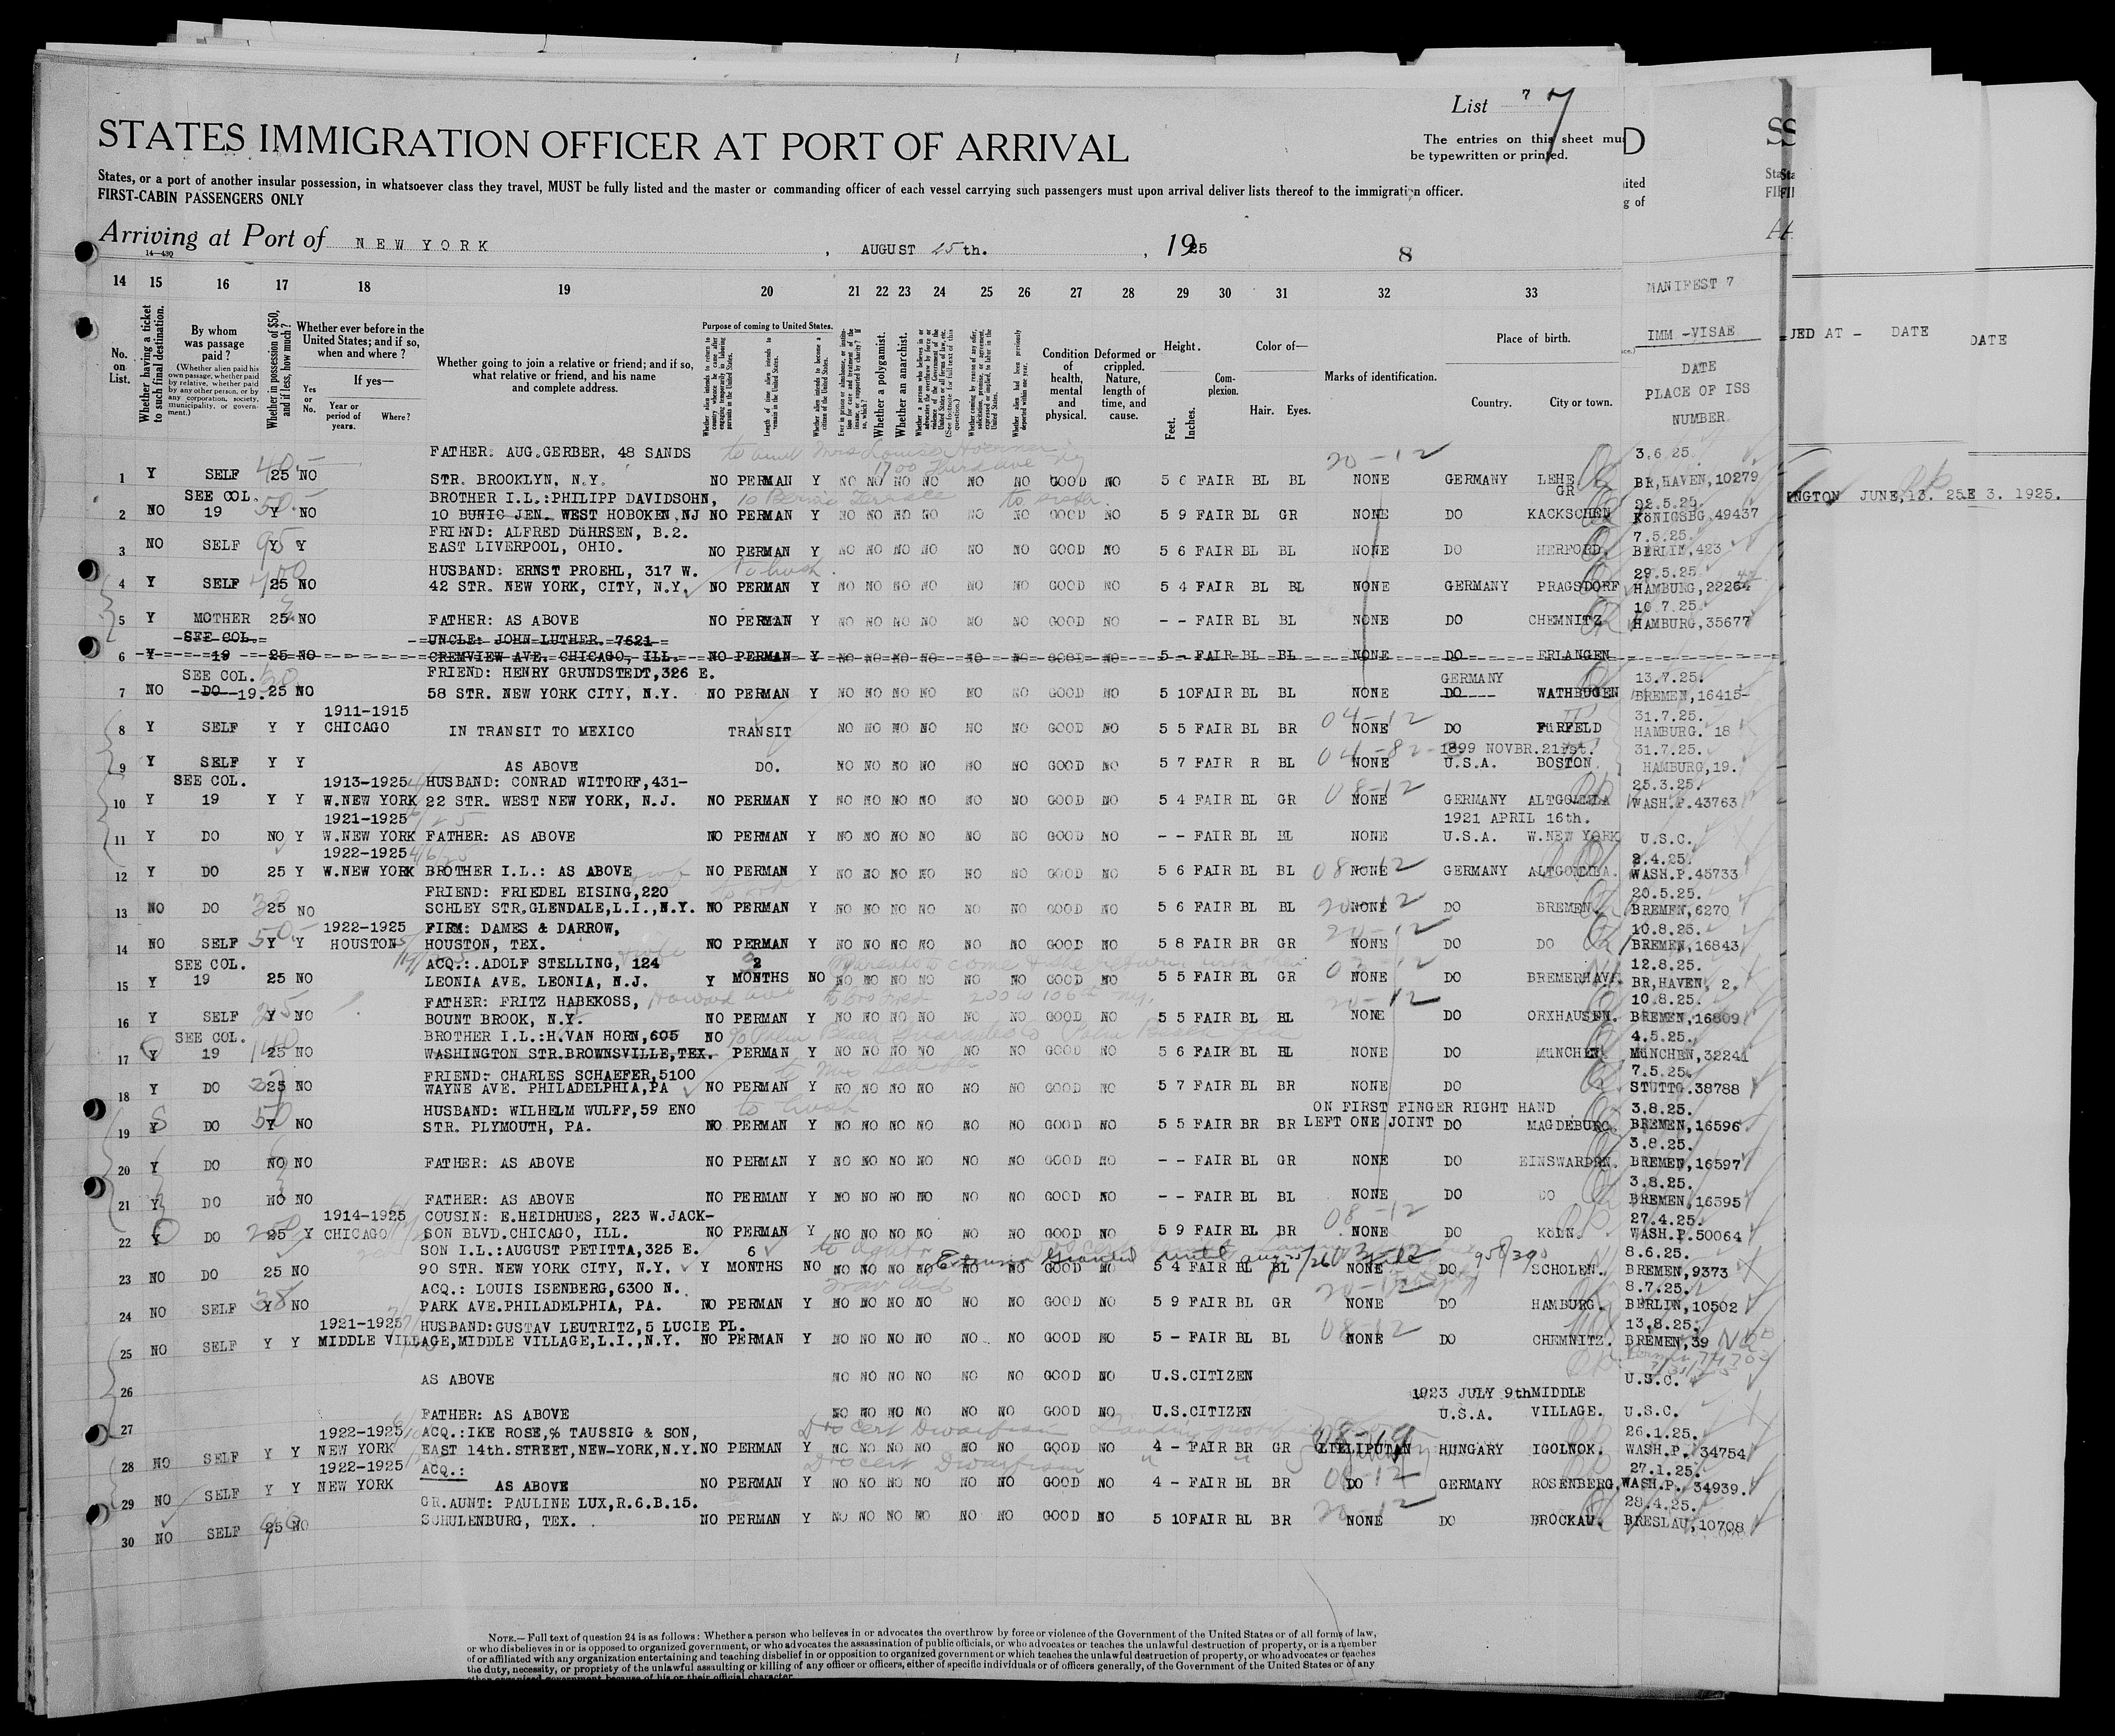 List 7 7
STATES IMMIGRATION OFFICER AT PORT OF ARRIVAL
The entries on this sheet mus
be typewritten or printed.
States, or a port of another insular possession, in whatsoever class they travel, MUST be fully listed and the master or commanding officer of each vessel carrying such passengers must upon arrival deliver lists thereof to the immigration officer.
FIRST-CABIN PASSENGERS ONLY
Arriving at Port of NEW YORK , AUGUST 25th. , 1925
14-430
8
14 15 16 17 18 19 20 21 22 23 24 25 26 27 28 29 30 31 32 33
MANIFEST 7
IMM-VISAE
DATE
PLACE OF ISS
NUMBER
No. on List.
Whether having a ticket to such final destination.
By whom was passage paid?
(Whether alien paid his own passage, whether paid by relative, whether paid by any other person, or by any corporation, society, municipality, or government.)
Whether in possession of $50, and if less, how much?
Whether ever before in the United States; and if so, when and where?
Yes or No.
If yes—
Year or period of years.
Where?
Whether going to join a relative or friend; and if so, what relative or friend, and his name and complete address.
Purpose of coming to United States.
Whether alien intends to return to country whence he came after engaging temporarily in laboring pursuits in the United States.
Length of time alien intends to remain in the United States.
Whether alien intends to become a citizen of the United States.
Whether a polygamist.
Whether an anarchist.
Condition of health, mental and physical.
Deformed or crippled. Nature, length of time, and cause.
Height.
Feet. Inches.
Complexion.
Color of—
Hair. Eyes.
Marks of identification.
Place of birth.
Country. City or town.
JED AT - DATE
DATE
INGTON JUNE,13. 25.E 3. 1925.
FATHER: AUG.GERBER, 48 SANDS 20-12 3.6.25.
1 Y SELF 25 NO STR. BROOKLYN, N.Y. NO PERMAN Y NO NO NO NO NO NO GOOD NO 5 6 FAIR BL BL NONE GERMANY LEHE BR,HAVEN,10279
SEE COL. BROTHER I.L.:PHILIPP DAVIDSOHN, to sister GR 22.5.25.
2 NO 19 Y NO 10 BUNIC JEN. WEST HOBOKEN,NJ NO PERMAN Y NO NO NO NO NO NO GOOD NO 5 9 FAIR BL GR NONE DO KACKSCHEN KÖNIGSBG,49437
FRIEND: ALFRED DüHRSEN, B.2. 7.5.25.
3 NO SELF Y Y EAST LIVERPOOL, OHIO. NO PERMAN Y NO NO NO NO NO NO GOOD NO 5 6 FAIR BL BL NONE DO HERFORD. BERLIN,423
HUSBAND: ERNST PROEHL, 317 W. to husb. 29.5.25.
4 Y SELF 25 NO 42 STR. NEW YORK, CITY, N.Y. NO PERMAN Y NO NO NO NO NO NO GOOD NO 5 4 FAIR BL BL NONE GERMANY PRAGSDORF HAMBURG,22264
10.7.25.
5 Y MOTHER 25 NO FATHER: AS ABOVE NO PERMAN Y NO NO NO NO NO NO GOOD NO - - FAIR BL BL NONE DO CHEMNITZ HAMBURG,35677
SEE COL. UNCLE: JOHN LUTHER. 7621
6 Y 19 25 NO CREMVIEW AVE. CHICAGO, ILL. NO PERMAN Y NO NO NO NO NO NO GOOD NO 5 - FAIR BL BL NONE DO ERLANGEN
SEE COL. FRIEND: HENRY GRUNDSTEDT,326 E. GERMANY 13.7.25.
7 NO DO 19. 25 NO 58 STR. NEW YORK CITY, N.Y. NO PERMAN Y NO NO NO NO NO NO GOOD NO 5 10 FAIR BL BL NONE DO WATHBUGEN BREMEN,16415
1911-1915 04-12 31.7.25.
8 Y SELF Y Y CHICAGO IN TRANSIT TO MEXICO TRANSIT NO NO NO NO NO NO GOOD NO 5 5 FAIR BL BR NONE DO FüRFELD HAMBURG. 18
1899 NOVBR.21st. 31.7.25.
9 Y SELF Y Y AS ABOVE DO. NO NO NO NO NO NO GOOD NO 5 7 FAIR R BL NONE U.S.A. BOSTON. HAMBURG,19.
SEE COL. 1913-1925 HUSBAND: CONRAD WITTORF,431- 08-12 25.3.25.
10 Y 19 Y Y W.NEW YORK 22 STR. WEST NEW YORK, N.J. NO PERMAN Y NO NO NO NO NO NO GOOD NO 5 4 FAIR BL GR NONE GERMANY WASH.P.43763
1921-1925 1921 APRIL 16th.
11 Y DO NO Y W.NEW YORK FATHER: AS ABOVE NO PERMAN Y NO NO NO NO NO NO GOOD NO - - FAIR BL BL NONE U.S.A. W.NEW YORK U.S.C.
1922-1925 2.4.25.
12 Y DO 25 Y W.NEW YORK BROTHER I.L.: AS ABOVE NO PERMAN Y NO NO NO NO NO NO GOOD NO 5 6 FAIR BL BL 08-12 NONE GERMANY WASH.P.45733
FRIEND: FRIEDEL EISING,220 20.5.25.
13 NO DO 25 NO SCHLEY STR.GLENDALE,L.I.,N.Y. NO PERMAN Y NO NO NO NO NO NO GOOD NO 5 6 FAIR BL BL 20-12 NONE DO BREMEN. BREMEN,6270
1922-1925 FIRM: DAMES & DARROW, 20-12 10.8.25.
14 NO SELF Y Y HOUSTON HOUSTON, TEX. NO PERMAN Y NO NO NO NO NO NO GOOD NO 5 8 FAIR BR GR NONE DO DO BREMEN,16843
SEE COL. ACQ.:.ADOLF STELLING, 124 2 12.8.25.
15 Y 19 25 NO LEONIA AVE. LEONIA, N.J. Y MONTHS NO NO NO NO NO NO NO GOOD NO 5 5 FAIR BL GR NONE DO BREMERHAV. BR,HAVEN, 2.
FATHER: FRITZ HABEKOSS, Howard ave 20-12 10.8.25.
16 Y SELF Y NO BOUNT BROOK, N.Y. NO PERMAN Y NO NO NO NO NO NO GOOD NO 5 5 FAIR BL BL NONE DO ORXHAUSEN. BREMEN,16809
SEE COL. BROTHER I.L.:H.VAN HORN,605 NO 4.5.25.
17 Y 19 25 NO WASHINGTON STR.BROWNSVILLE,TEX. PERMAN Y NO NO NO NO NO NO GOOD NO 5 6 FAIR BL BL NONE DO MüNCHEN MüNCHEN,32241
FRIEND: CHARLES SCHAEFER,5100 7.5.25.
18 Y DO 25 NO WAYNE AVE. PHILADELPHIA,PA NO PERMAN Y NO NO NO NO NO NO GOOD NO 5 7 FAIR BL BR NONE DO STUTTG.38788
HUSBAND: WILHELM WULFF,59 ENO to husb ON FIRST FINGER RIGHT HAND 3.8.25.
19 Y DO Y NO STR. PLYMOUTH, PA. NO PERMAN Y NO NO NO NO NO NO GOOD NO 5 5 FAIR BR BR LEFT ONE JOINT DO MAGDEBURG. BREMEN,16596
3.8.25.
20 Y DO NO NO FATHER: AS ABOVE NO PERMAN Y NO NO NO NO NO NO GOOD NO - - FAIR BL GR NONE DO EINSWARDEN. BREMEN,16597
3.8.25.
21 Y DO NO NO FATHER: AS ABOVE NO PERMAN Y NO NO NO NO NO NO GOOD NO - - FAIR BL BL NONE DO DO BREMEN,16595
1914-1925 COUSIN: E.HEIDHUES, 223 W.JACK- 08-12 27.4.25.
22 Y DO 25 Y CHICAGO SON BLVD.CHICAGO, ILL. NO PERMAN Y NO NO NO NO NO NO GOOD NO 5 9 FAIR BL BR NONE DO KöLN. WASH.P.50064
SON I.L.:AUGUST PETITTA,325 E. 6 Extension Granted until 8.6.25.
23 NO DO 25 NO 90 STR. NEW YORK CITY, N.Y. Y MONTHS NO NO NO NO NO NO NO GOOD NO 5 4 FAIR BL BL NONE DO SCHOLEN. BREMEN,9373
ACQ.: LOUIS ISENBERG,6300 N. 8.7.25.
24 NO SELF 38 Y NO PARK AVE.PHILADELPHIA, PA. NO PERMAN Y NO NO NO NO NO NO GOOD NO 5 9 FAIR BL GR NONE DO HAMBURG. BERLIN,10502
1921-1925 HUSBAND:GUSTAV LEUTRITZ,5 LUCIE PL. 08-12 13.8.25.
25 NO SELF Y Y MIDDLE VILLAGE,MIDDLE VILLAGE,L.I.,N.Y. NO PERMAN Y NO NO NO NO NO NO GOOD NO 5 - FAIR BL BL NONE DO CHEMNITZ. BREMEN,39
26 AS ABOVE NO NO NO NO NO NO GOOD NO U.S.CITIZEN U.S.C.
1923 JULY 9th MIDDLE
27 FATHER: AS ABOVE NO NO NO NO NO NO GOOD NO U.S.CITIZEN U.S.A. VILLAGE. U.S.C.
1922-1925 ACQ.:IKE ROSE,% TAUSSIG & SON, Drs cert Dwarfism 26.1.25.
28 NO SELF Y Y NEW YORK EAST 14th.STREET,NEW-YORK,N.Y. NO PERMAN Y NO NO NO NO NO NO GOOD NO 4 - FAIR BR GR LILLIPUTAN HUNGARY IGOLNOK. WASH.P. 34754
1922-1925 ACQ.: Drs cert Dwarfism 08-12 27.1.25.
29 NO SELF Y Y NEW YORK AS ABOVE NO PERMAN Y NO NO NO NO NO NO GOOD NO 4 - FAIR BL BR DO GERMANY ROSENBERG. WASH.P. 34939.
GR.AUNT: PAULINE LUX,R.6.B.15. 20-12 28.4.25.
30 NO SELF 25 NO SCHULENBURG, TEX. NO PERMAN Y NO NO NO NO NO NO GOOD NO 5 10 FAIR BL BR NONE DO BROCKAU. BRESLAU,10708
NOTE.—Full text of question 24 is as follows: Whether a person who believes in or advocates the overthrow by force or violence of the Government of the United States or of all forms of law,
or who disbelieves in or is opposed to organized government, or who advocates the assassination of public officials, or who advocates or teaches the unlawful destruction of property, or is a member
of or affiliated with any organization entertaining and teaching disbelief in or opposition to organized government or which teaches the unlawful destruction of property, or who advocates or teaches
the duty, necessity, or propriety of the unlawful assaulting or killing of any officer or officers, either of specific individuals or of officers generally, of the Government of the United States or of any